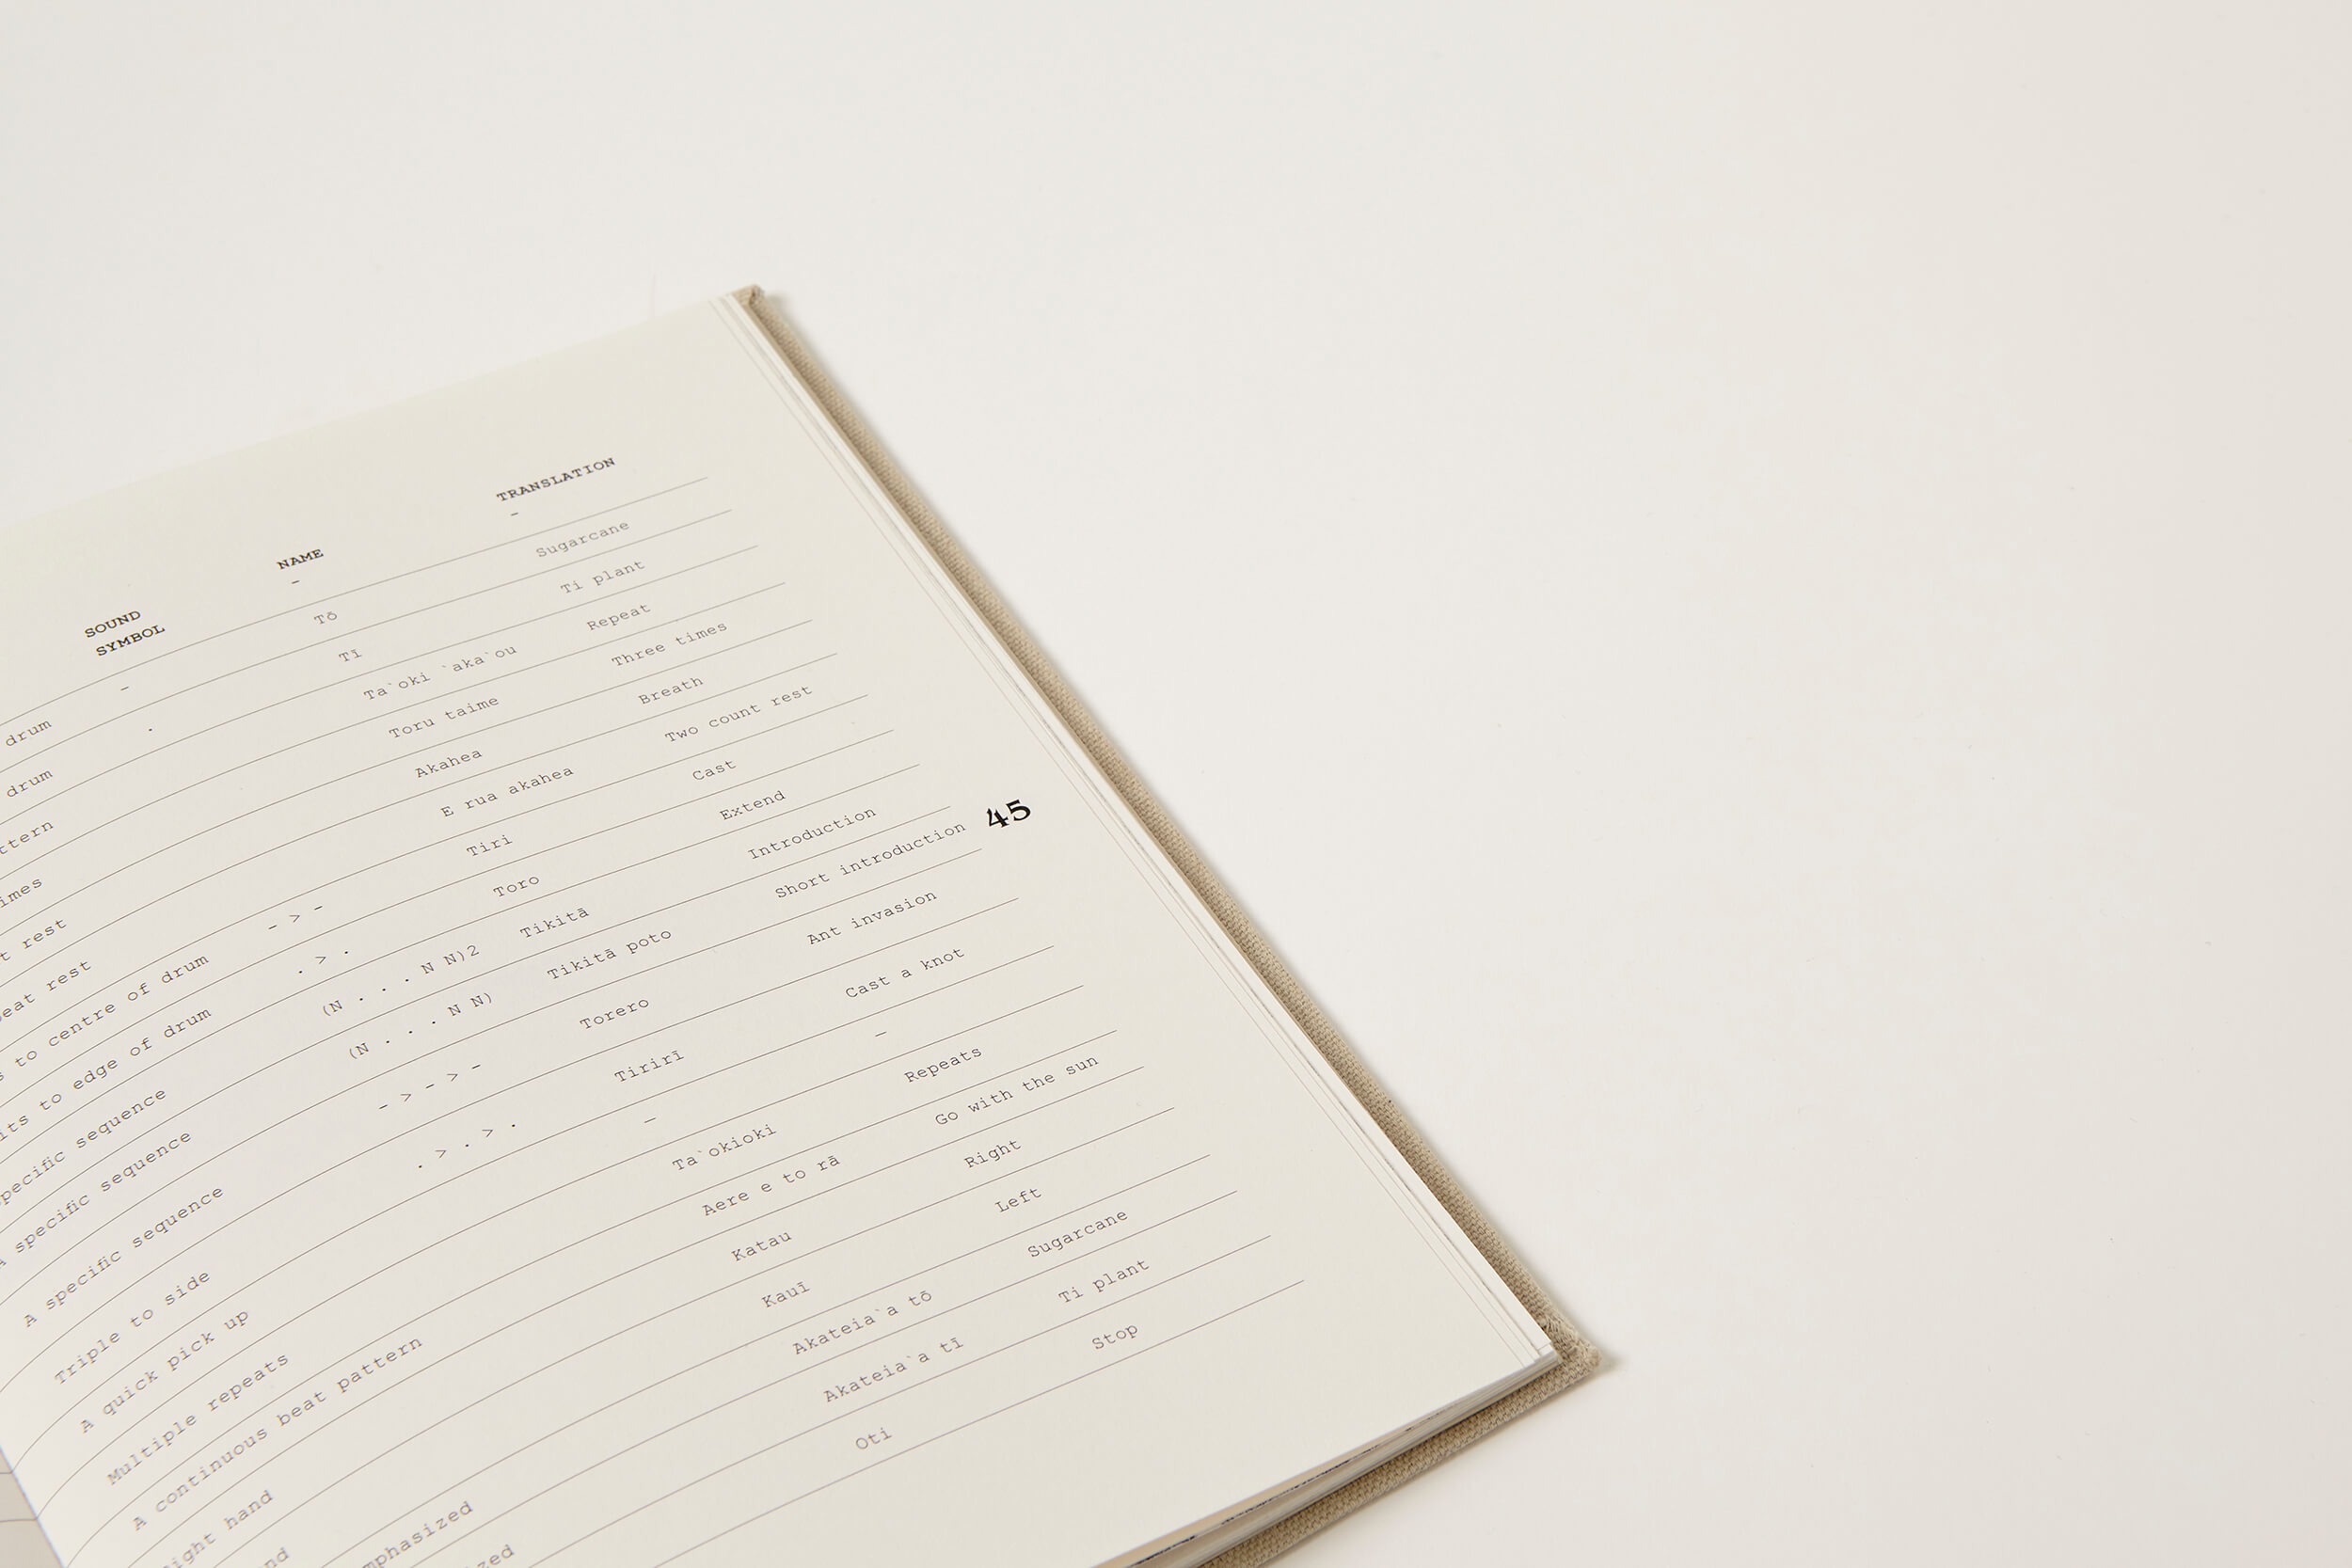 SOUND SYMBOL NAME TRANSLATION
- -
drum – Tō Sugarcane
drum . Tī Ti plant
ttern Ta`oki `aka`ou Repeat
imes Toru taime Three times
t rest Akahea Breath
eat rest E rua akahea Two count rest
s to centre of drum – > – Tiri Cast
its to edge of drum . > . Toro Extend
pecific sequence (N . . . N N)2 Tikitā Introduction
A specific sequence (N . . . N N) Tikitā poto Short introduction
45
A specific sequence – > – > – Torero Ant invasion
Triple to side . > . > . Tirirī Cast a knot
A quick pick up – –
Multiple repeats Ta`okioki Repeats
A continuous beat pattern Aere e to rā Go with the sun
ight hand Katau Right
nd Kauī Left
mphasized Akateia`a tō Sugarcane
zed Akateia`a tī Ti plant
Oti Stop